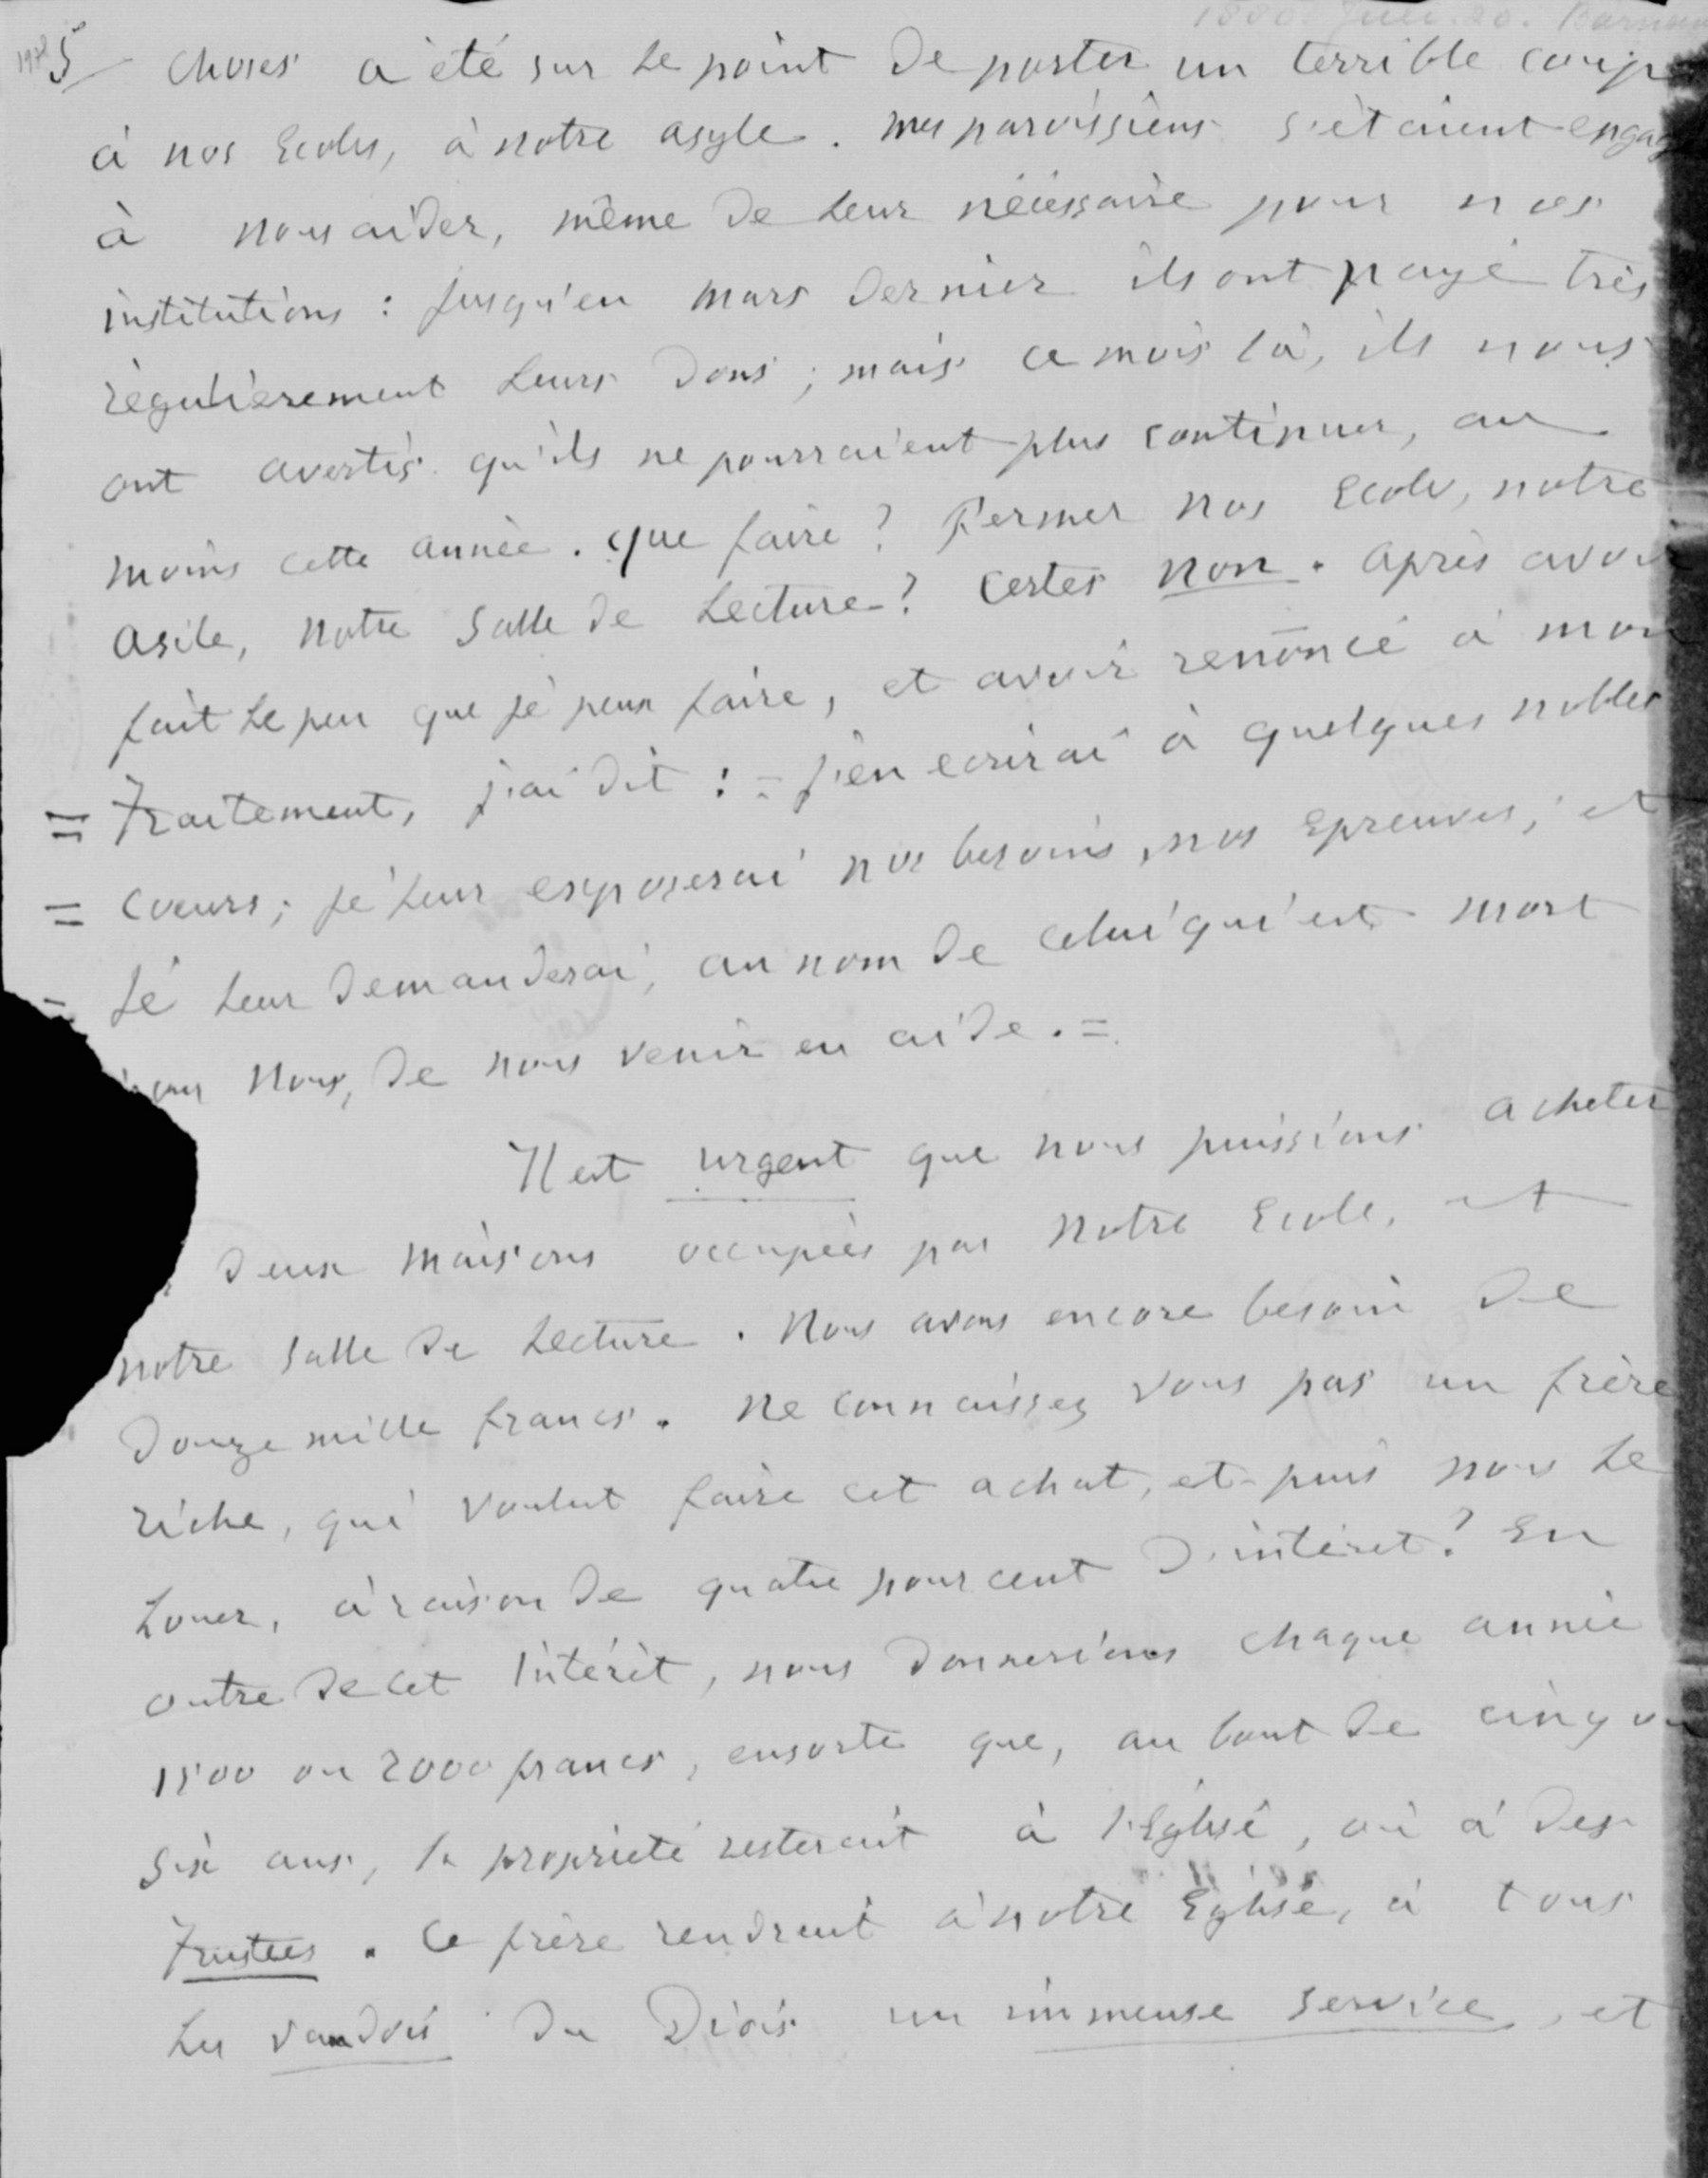 5 choses a été sur le point de porter un terrible coup
à nos Ecoles, à notre asyle. mes paroissiens s'étaient engag
à nous aider, même de leur nécéssaire pour nos
institutions : jusqu'en mars dernier ils ont payé très
régulièrement leurs dons ; mais ce mois là, ils nous
ont avertis qu'ils ne pourraient plus continuer, au
moins cette année. que faire ? Fermer nos Ecoles, notre
asile, notre salle de Lecture ? certes non. après avoir
fait le peu que je peux faire, et avoir renoncé à mon
= Traitement, j'ai dit : = j'en ecrirai à quelques nobles
= coeurs ; je leur exposerai nos besoins, nos epreuves ; et
= je leur demanderai, au nom de celui qui est mort
pour nous, de nous venir en aide. =
Il est urgent que nous puissions acheter
deux maisons occupées par notre Ecole, et
notre salle de Lecture. Nous avons encore besoin de
douze mille francs. ne connaissez vous pas un frère
riche, qui voulut faire cet achat, et puis nous le
Louer, à raison de quatre pour cent d'intérêt ? En
outre de cet intérêt, nous donnerions chaque année
1500 ou 2000 francs, ensorte que, au bout de cinq ou
six ans, la propriété resterait à l'Eglise, ou à des
Trustees. Ce frère rendrait à notre Eglise, à tous
les vaudois du Diois un immense service, et